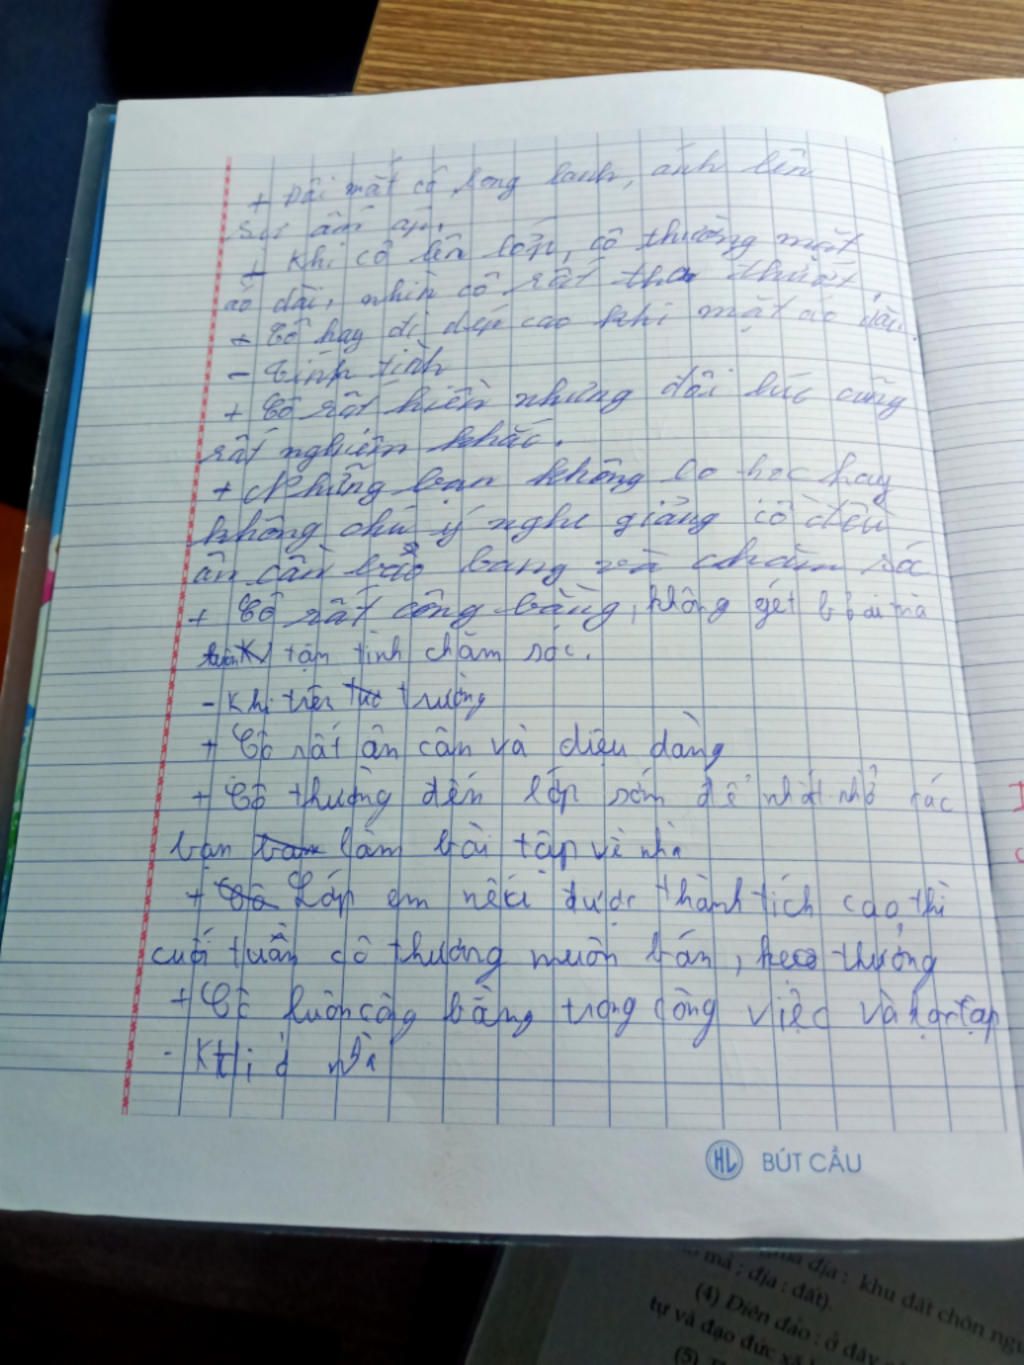 + Đôi mắt cô long lanh, ánh lên
sự ấm áp.
+ Khi cô lên lớp, cô thường mặt
áo dài, nhìn cô rất tha thướt
+ Cô hay đi dép cao khi mặt áo dài.
- Tính tình
+ Cô rất hiền nhưng đôi lúc cũng
rất nghiêm khắc.
+ Những bạn không lo học hay
không chú ý nghe giảng cô đều
ân cần bảo bang và chăm só
+ Cô rất công bằng, không gét bỏ ai mà
tận tình chăm sóc.
- Khi trên trường
+ Cô rất ân cần và diệu dàng
+ Cô thường đến lớp sớm để nhắt nhở các
bạn làm bài tập về nhà
+ Lớp em nếu được thành tích cao thì
cuối tuần cô thường muôn bán, keo thưởng
+ Cô luôn công bằng trong công việc và học tập
- Khi ở nhà
HL BÚT CẨU
địa : khu đất chôn ngư
mả ; địa : đất).
(4) Điên đảo : ở đây
tự và đạo đức xã
(5)